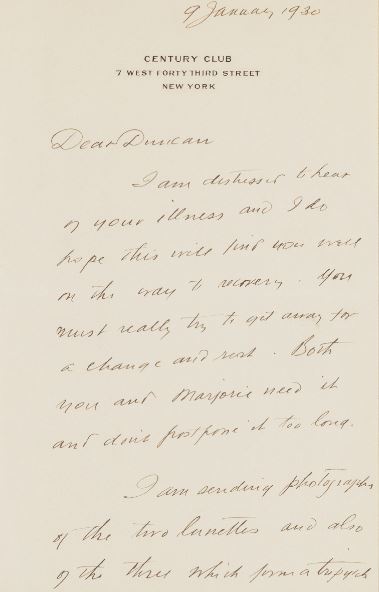 9 January 1930
CENTURY CLUB
7 WEST FORTY THIRD STREET
NEW YORK
Dear Duncan
I am distressed to hear
of your illness and I do
hope this will find you well
on the way to recovery. You
must really try to get away for
a change and rest. Both
you and Marjorie need it
and don't postpone it too long.
I am sending photographs
of the two lunettes and also
of the three which form a triptych